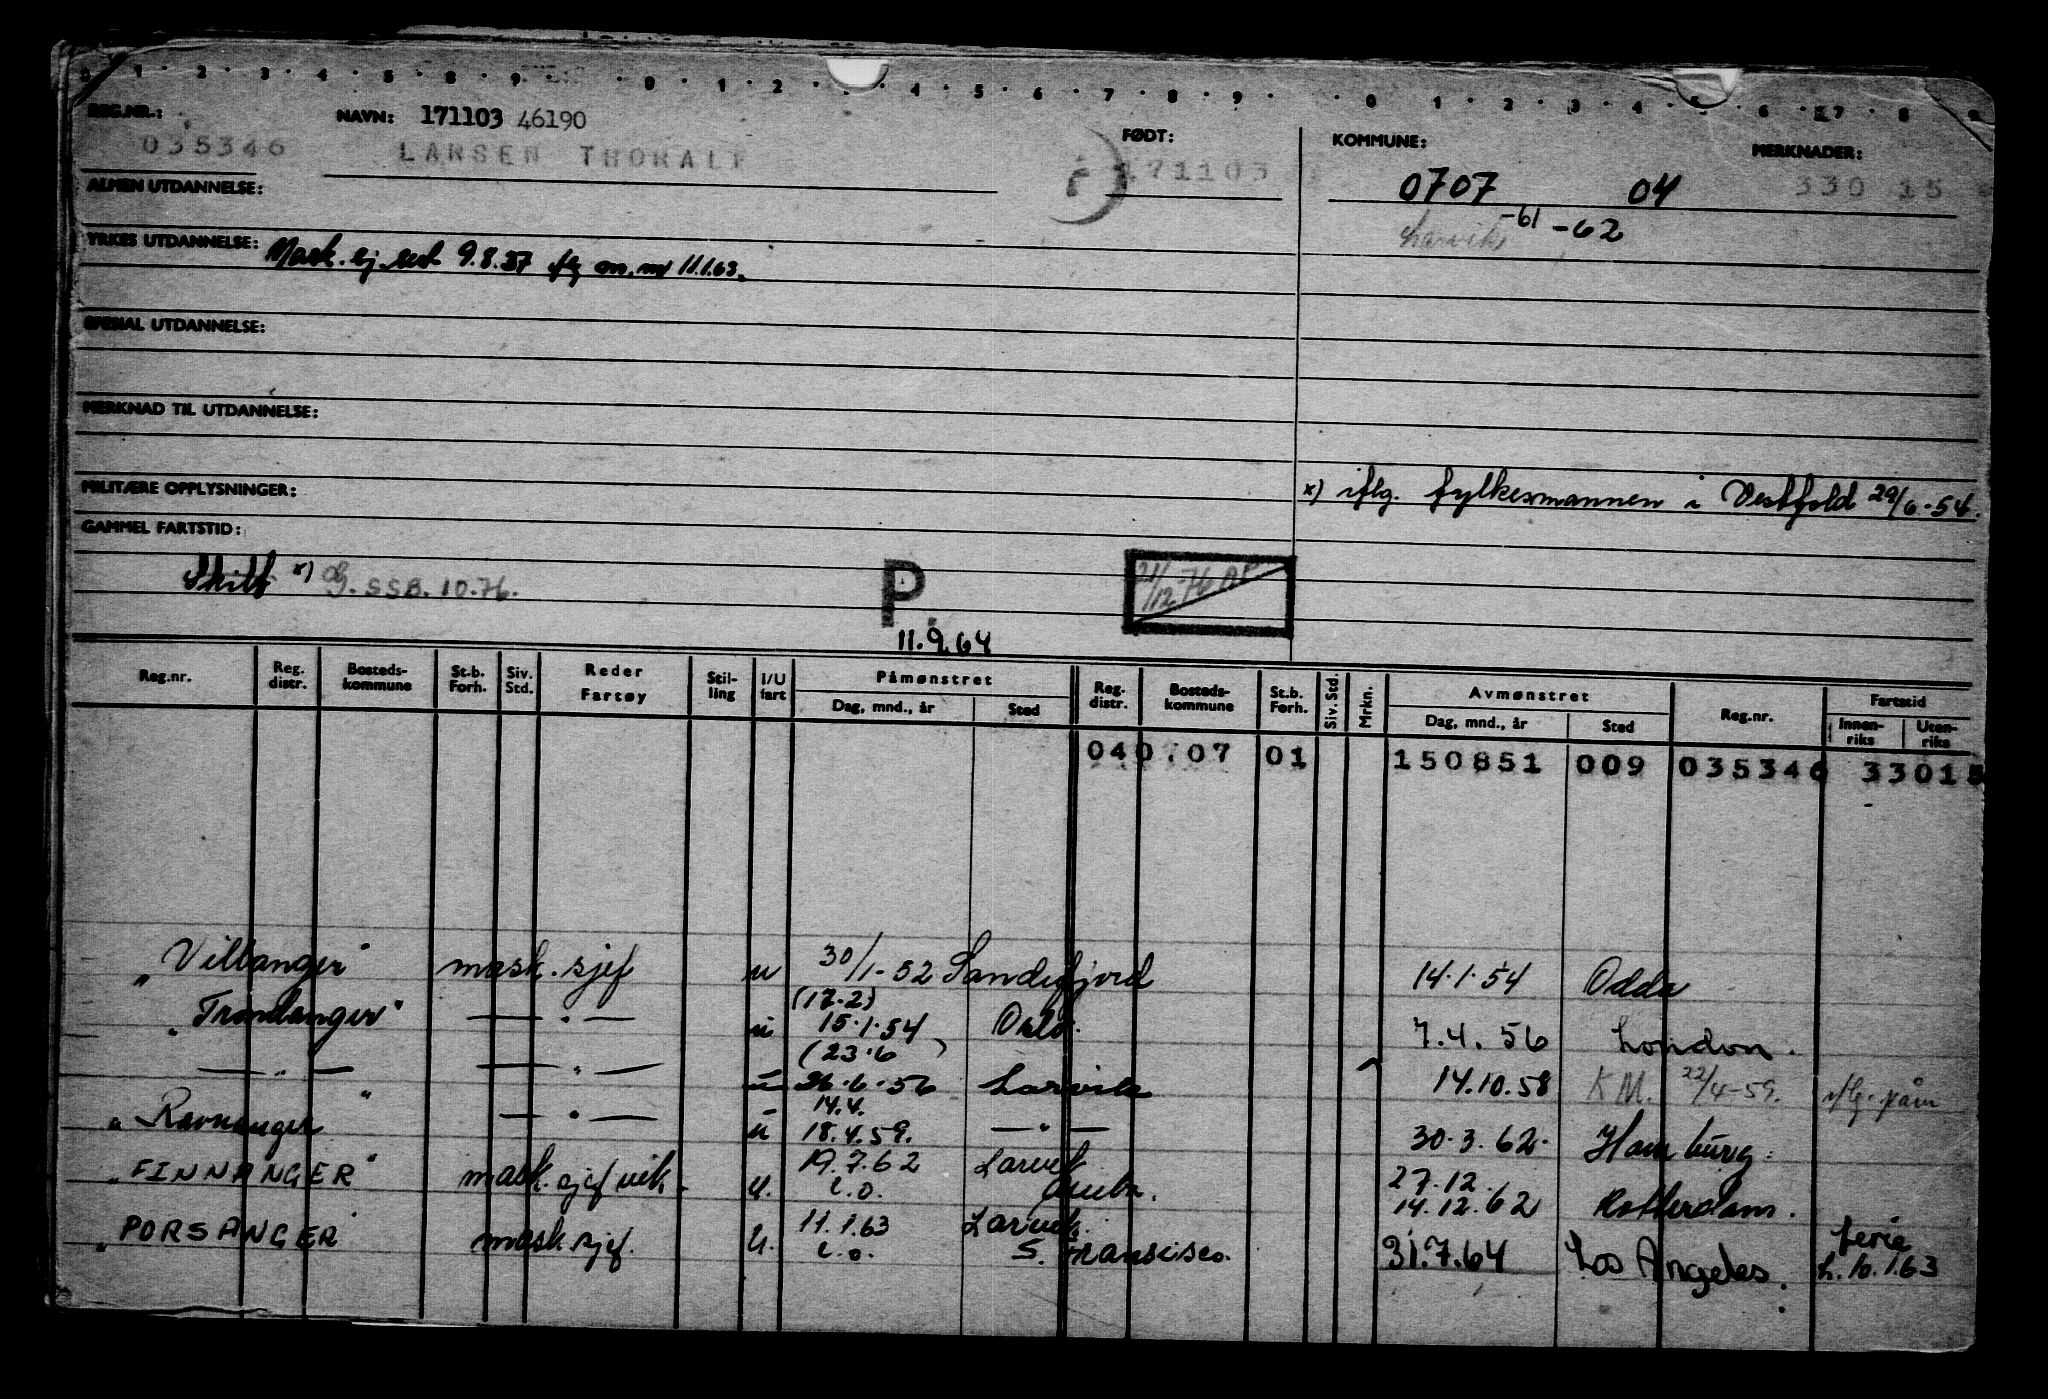 0 · 1 · 2 · 3 · 4 · 5 · 8 · 9 · · 0 · 1 · 2 · · 4 · 5 · 6 · 7 · 8 · 9 · · 0 · 1 · 2 · 3 · 4 · 5 · 6 · 7 · 8 ·
REG.NR.: NAVN: 171103 46190 FØDT: KOMMUNE: MERKNADER:
035346 LARSEN THORALF 171103 0707 04 330 15
ALMEN UTDANNELSE:
Larvik -61 -62
YRKES UTDANNELSE: Mask. sj. sert 9.8.37 iflg on. nr 11.1.63.
SPESIAL UTDANNELSE:
MERKNAD TIL UTDANNELSE:
MILITÆRE OPPLYSNINGER: x) iflg. fylkesmannen i Vestfold 29/6-54.
GAMMEL FARTSTID:
Skilt x) og. SSB. 10.76. P. 21/12-76
11.9.64
Reg.nr. Reg. distr. Bosteds-kommune St.b. Forh. Siv. Std. Reder Fartøy Stil-ling I/U fart Påmønstret Reg. distr. Bosteds-kommune St.b. Forh. Siv. Std. Mrkn. Avmønstret Reg.nr. Fartstid
Dag, mnd., år Sted Dag, mnd., år Sted Innen-riks Uten-riks
040.07 01 150851 009 035346 33015
"Villanger" mask. sjef u 30/1-52 Sandefjord 14.1.54 Odda
(17.2)
"Trondanger" — " — u 15.1.54 Oslo. 7.4.56 London.
(23.6 )
— " — " — " — u 26.6.56 Larvik 14.10.58 KM. 22/4-59. iflg. påm
14.4.
"Ravnanger — " — u 18.4.59. — " — 30.3.62. Hamburg.
"FINNANGER" mask. sjef vik. u. 19.7.62 Larvik 27.12.
i.o. 14.12.62 Rotterdam.
"PORSANGER" mask sjef. u. 11.1.63 Larvik. ferie
i.o. S. Fransisco. 31.7.64 Los Angeles. t. 10.1.63